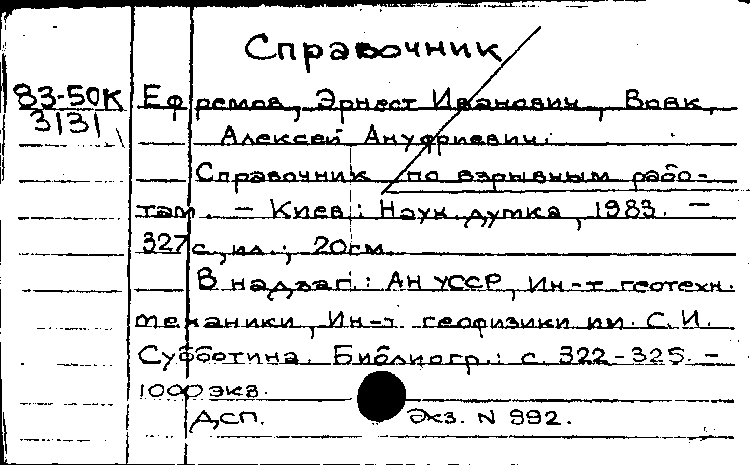 Справочник
83-50К Ефремов, Эрнест Иванович, Вовк,
3131 Алексей Ануфриевич.
Справочник по взрывным рабо-
там. – Киев: Наук. думка, 1983. –
327 с., ил.; 20 см.
В надзаг.: АН УССР, Ин-т геотехн.
механики, Ин-т геофизики им. С. И.
Субботина. Библиогр.: с. 322-325. –
1000 экз.
ДСП. Экз. N 992.